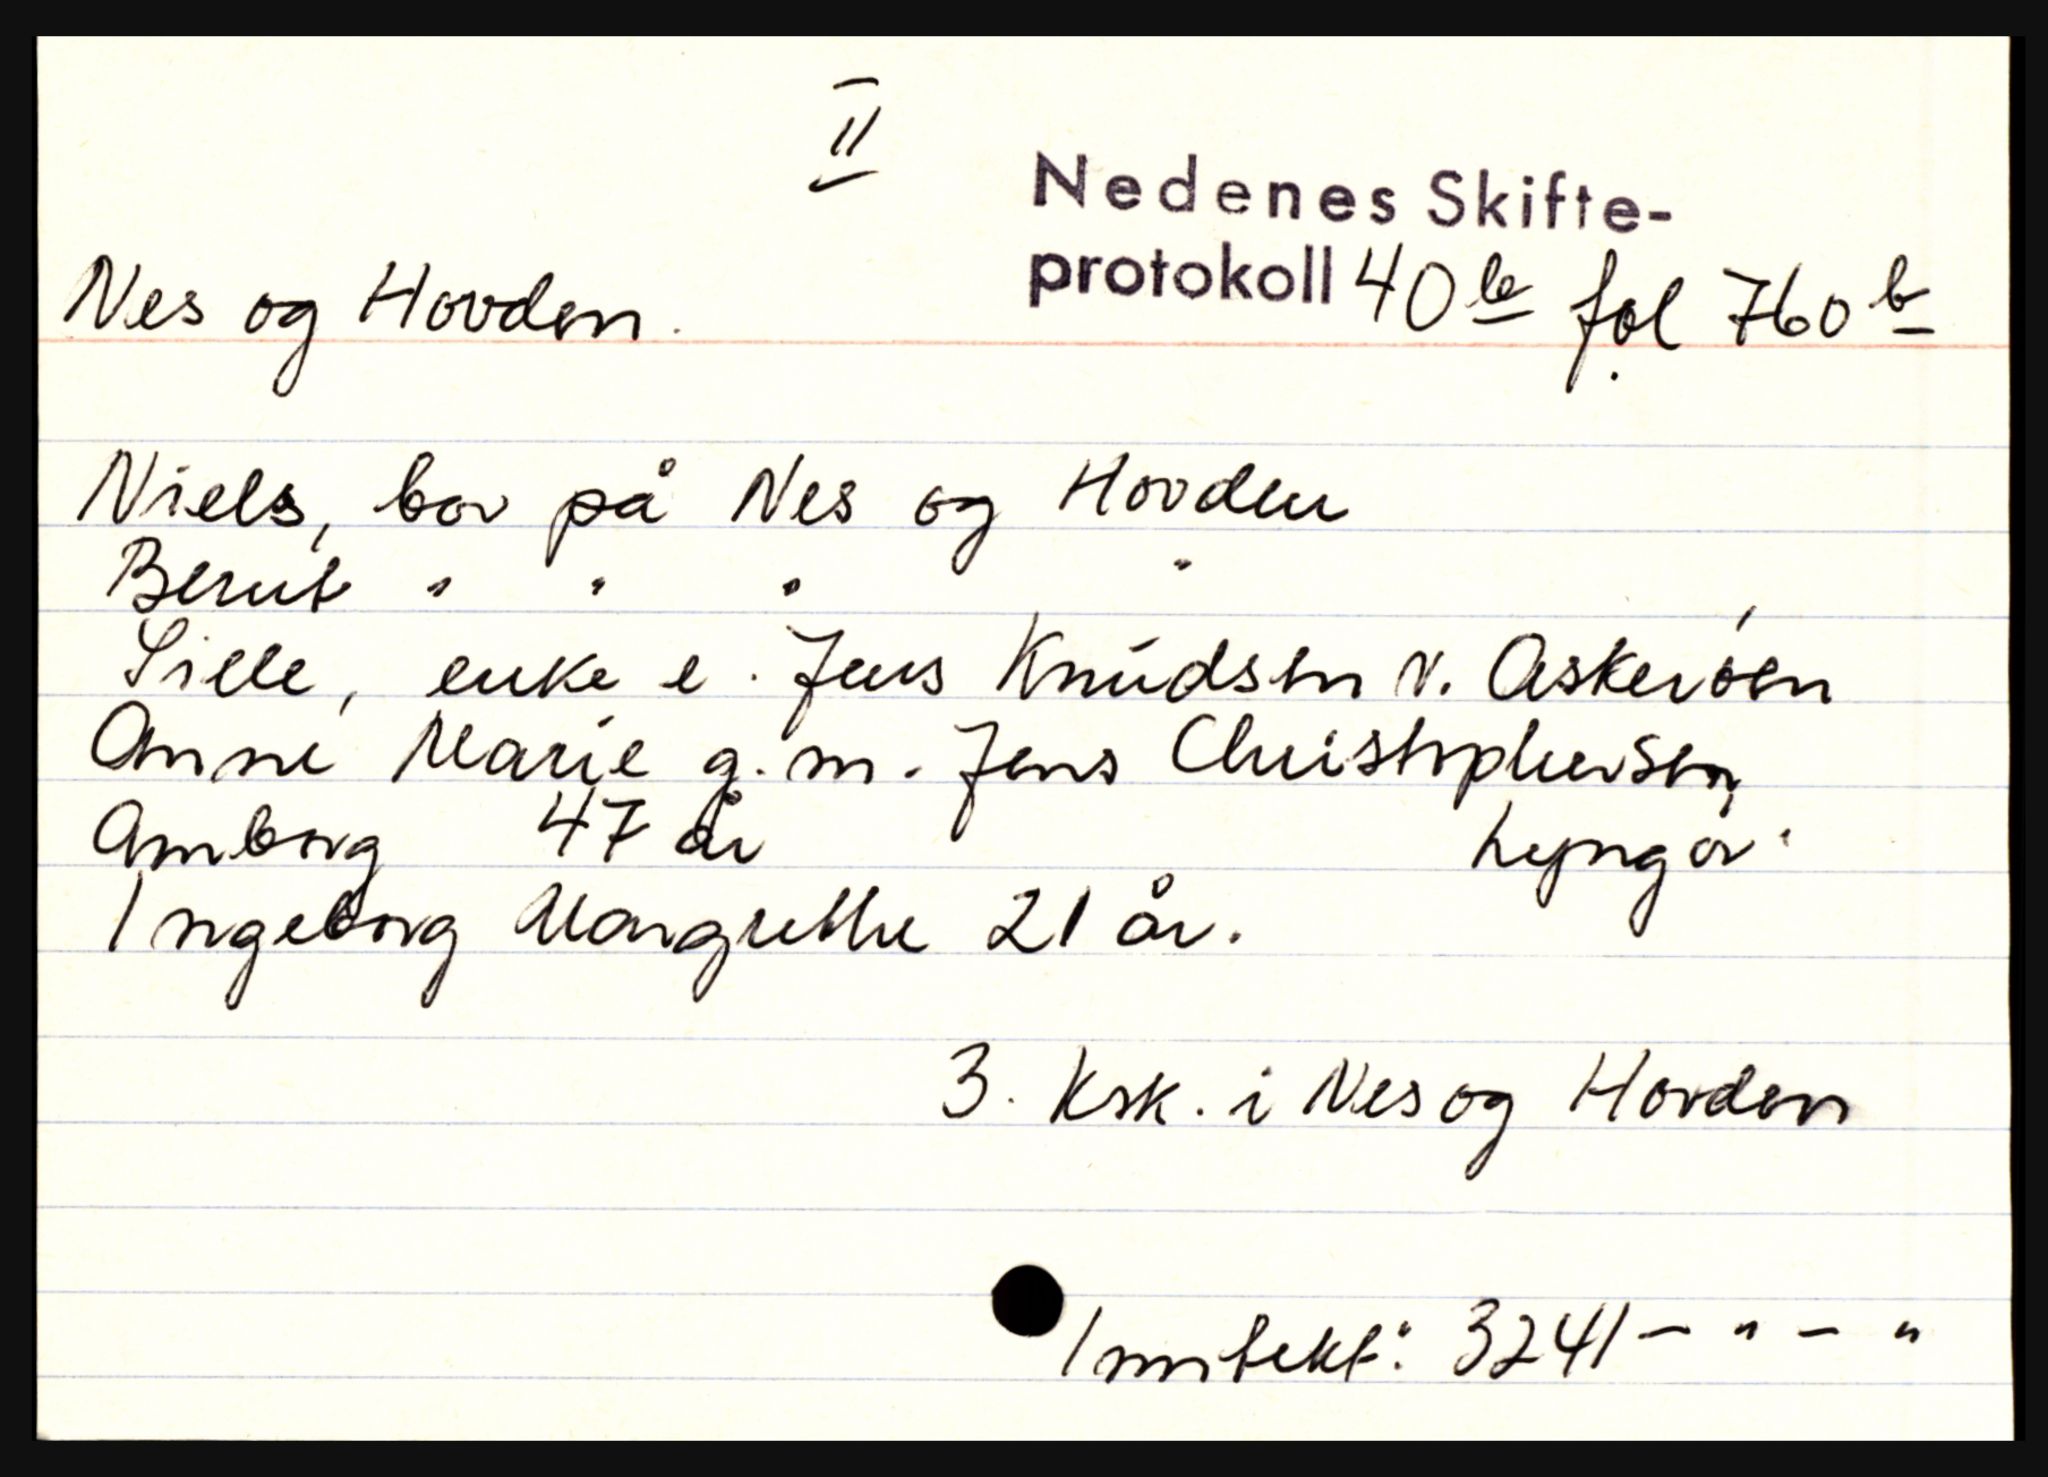 II
Nedenes Skifte-
protokoll 40 b fol 760 b
Nes og Hovden.
Niels, bor på Nes og Hovden
Berut " " " "
Sille, enke e. Jens Knudsen v. Askerøen
Anne Marie g.m. Jens Christophersen,
Amborg 47 år Lyngør.
Ingeborg Margrethe 21 år.
3. Ksk. i Nes og Hovden
Inntekt: 3241 - " - "